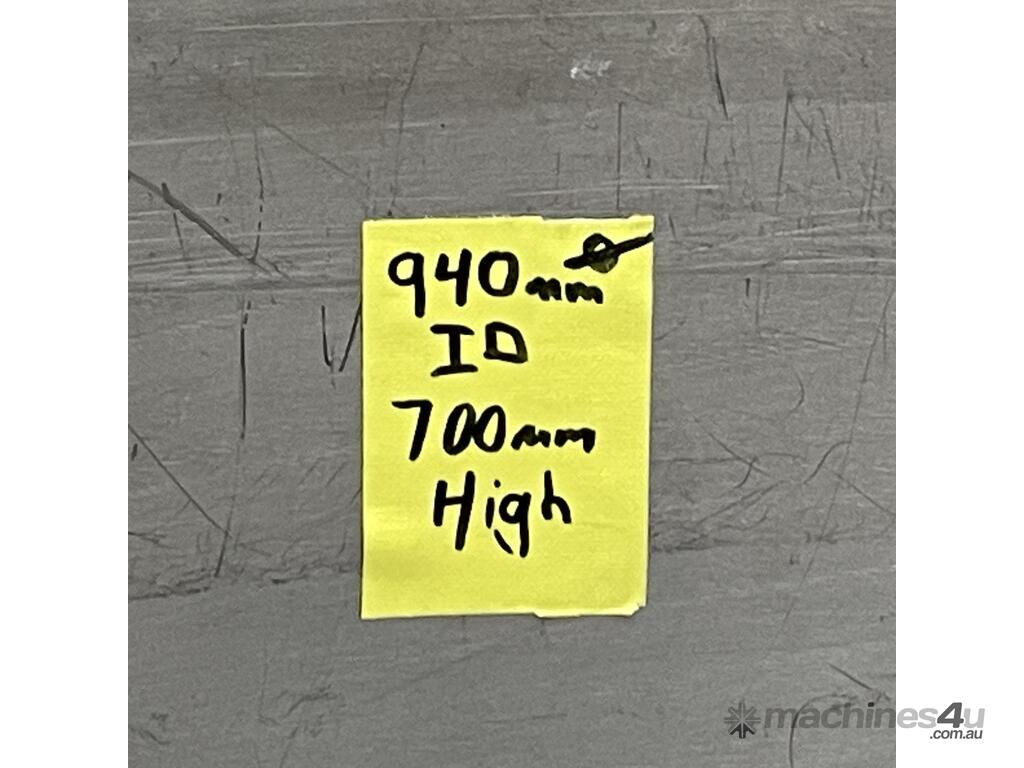 940mm ⌀
ID
700mm
High
machines4u
.com.au